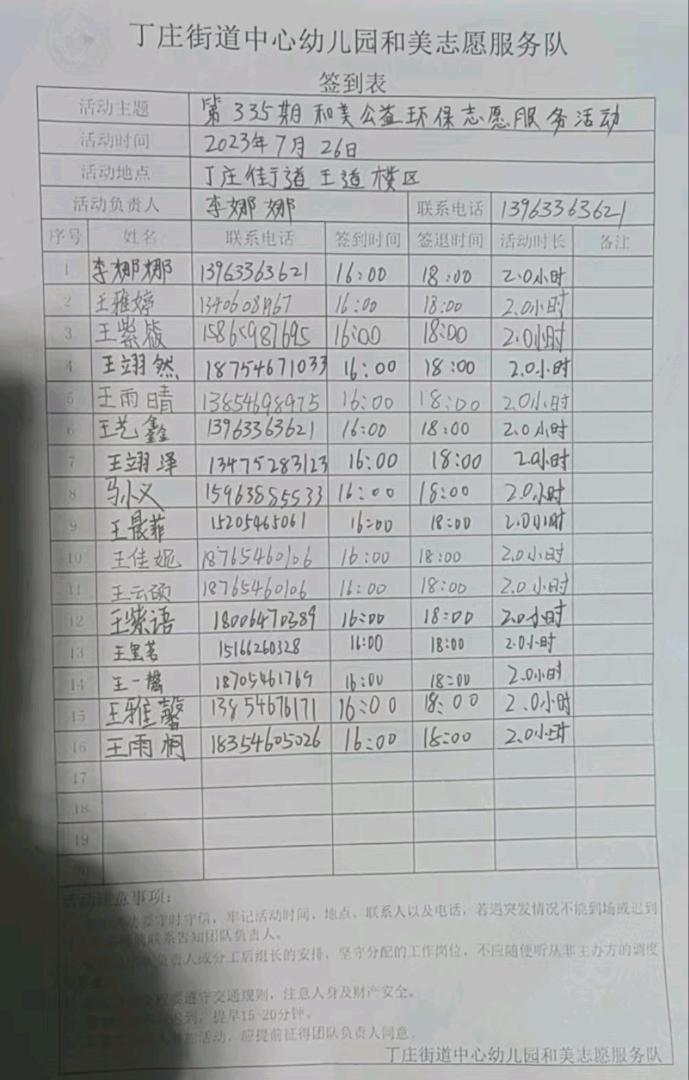 丁庄街道中心幼儿园和美志愿服务队
签到表
活动主题 第335期和美公益环保志愿服务活动
活动时间 2023年7月26日
活动地点 丁庄街道王道楼区
活动负责人 李娜娜 联系电话 13963363621
序号 姓名 联系电话 签到时间 签退时间 活动时长 备注
1 李娜娜 13963363621 16:00 18:00 2.0小时
2 王雅婷 16:00 18:00 2.0小时
3 王紫筱 15865987695 16:00 18:00 2.0小时
4 王翊然 18754671033 16:00 18:00 2.0小时
5 王雨晴 13854698975 16:00 18:00 2.0小时
6 王艺鑫 13963363621 16:00 18:00 2.0小时
7 王翊泽 13475283123 16:00 18:00 2.0小时
8 马小义 15963885533 16:00 18:00 2.0小时
9 王晨菲 15205465061 16:00 18:00 2.0小时
10 王佳妮 18765460106 16:00 18:00 2.0小时
11 王云硕 18765460106 16:00 18:00 2.0小时
12 王紫语 18006470389 16:00 18:00 2.0小时
13 15166260328 16:00 18:00 2.0小时
14 王一馨 18705461769 16:00 18:00 2.0小时
15 王雅馨 13854676171 16:00 18:00 2.0小时
16 王雨桐 18354605026 16:00 18:00 2.0小时
17
18
19
活动注意事项:
要守时守信，牢记活动时间、地点、联系人以及电话，若遇突发情况不能到场或迟到
联系告知团队负责人。
负责人或分工后组长的安排，坚守分配的工作岗位，不应随便听从非主办方的调度
要遵守交通规则，注意人身及财产安全。
到，提早15-20分钟。
活动，应提前征得团队负责人同意。
丁庄街道中心幼儿园和美志愿服务队